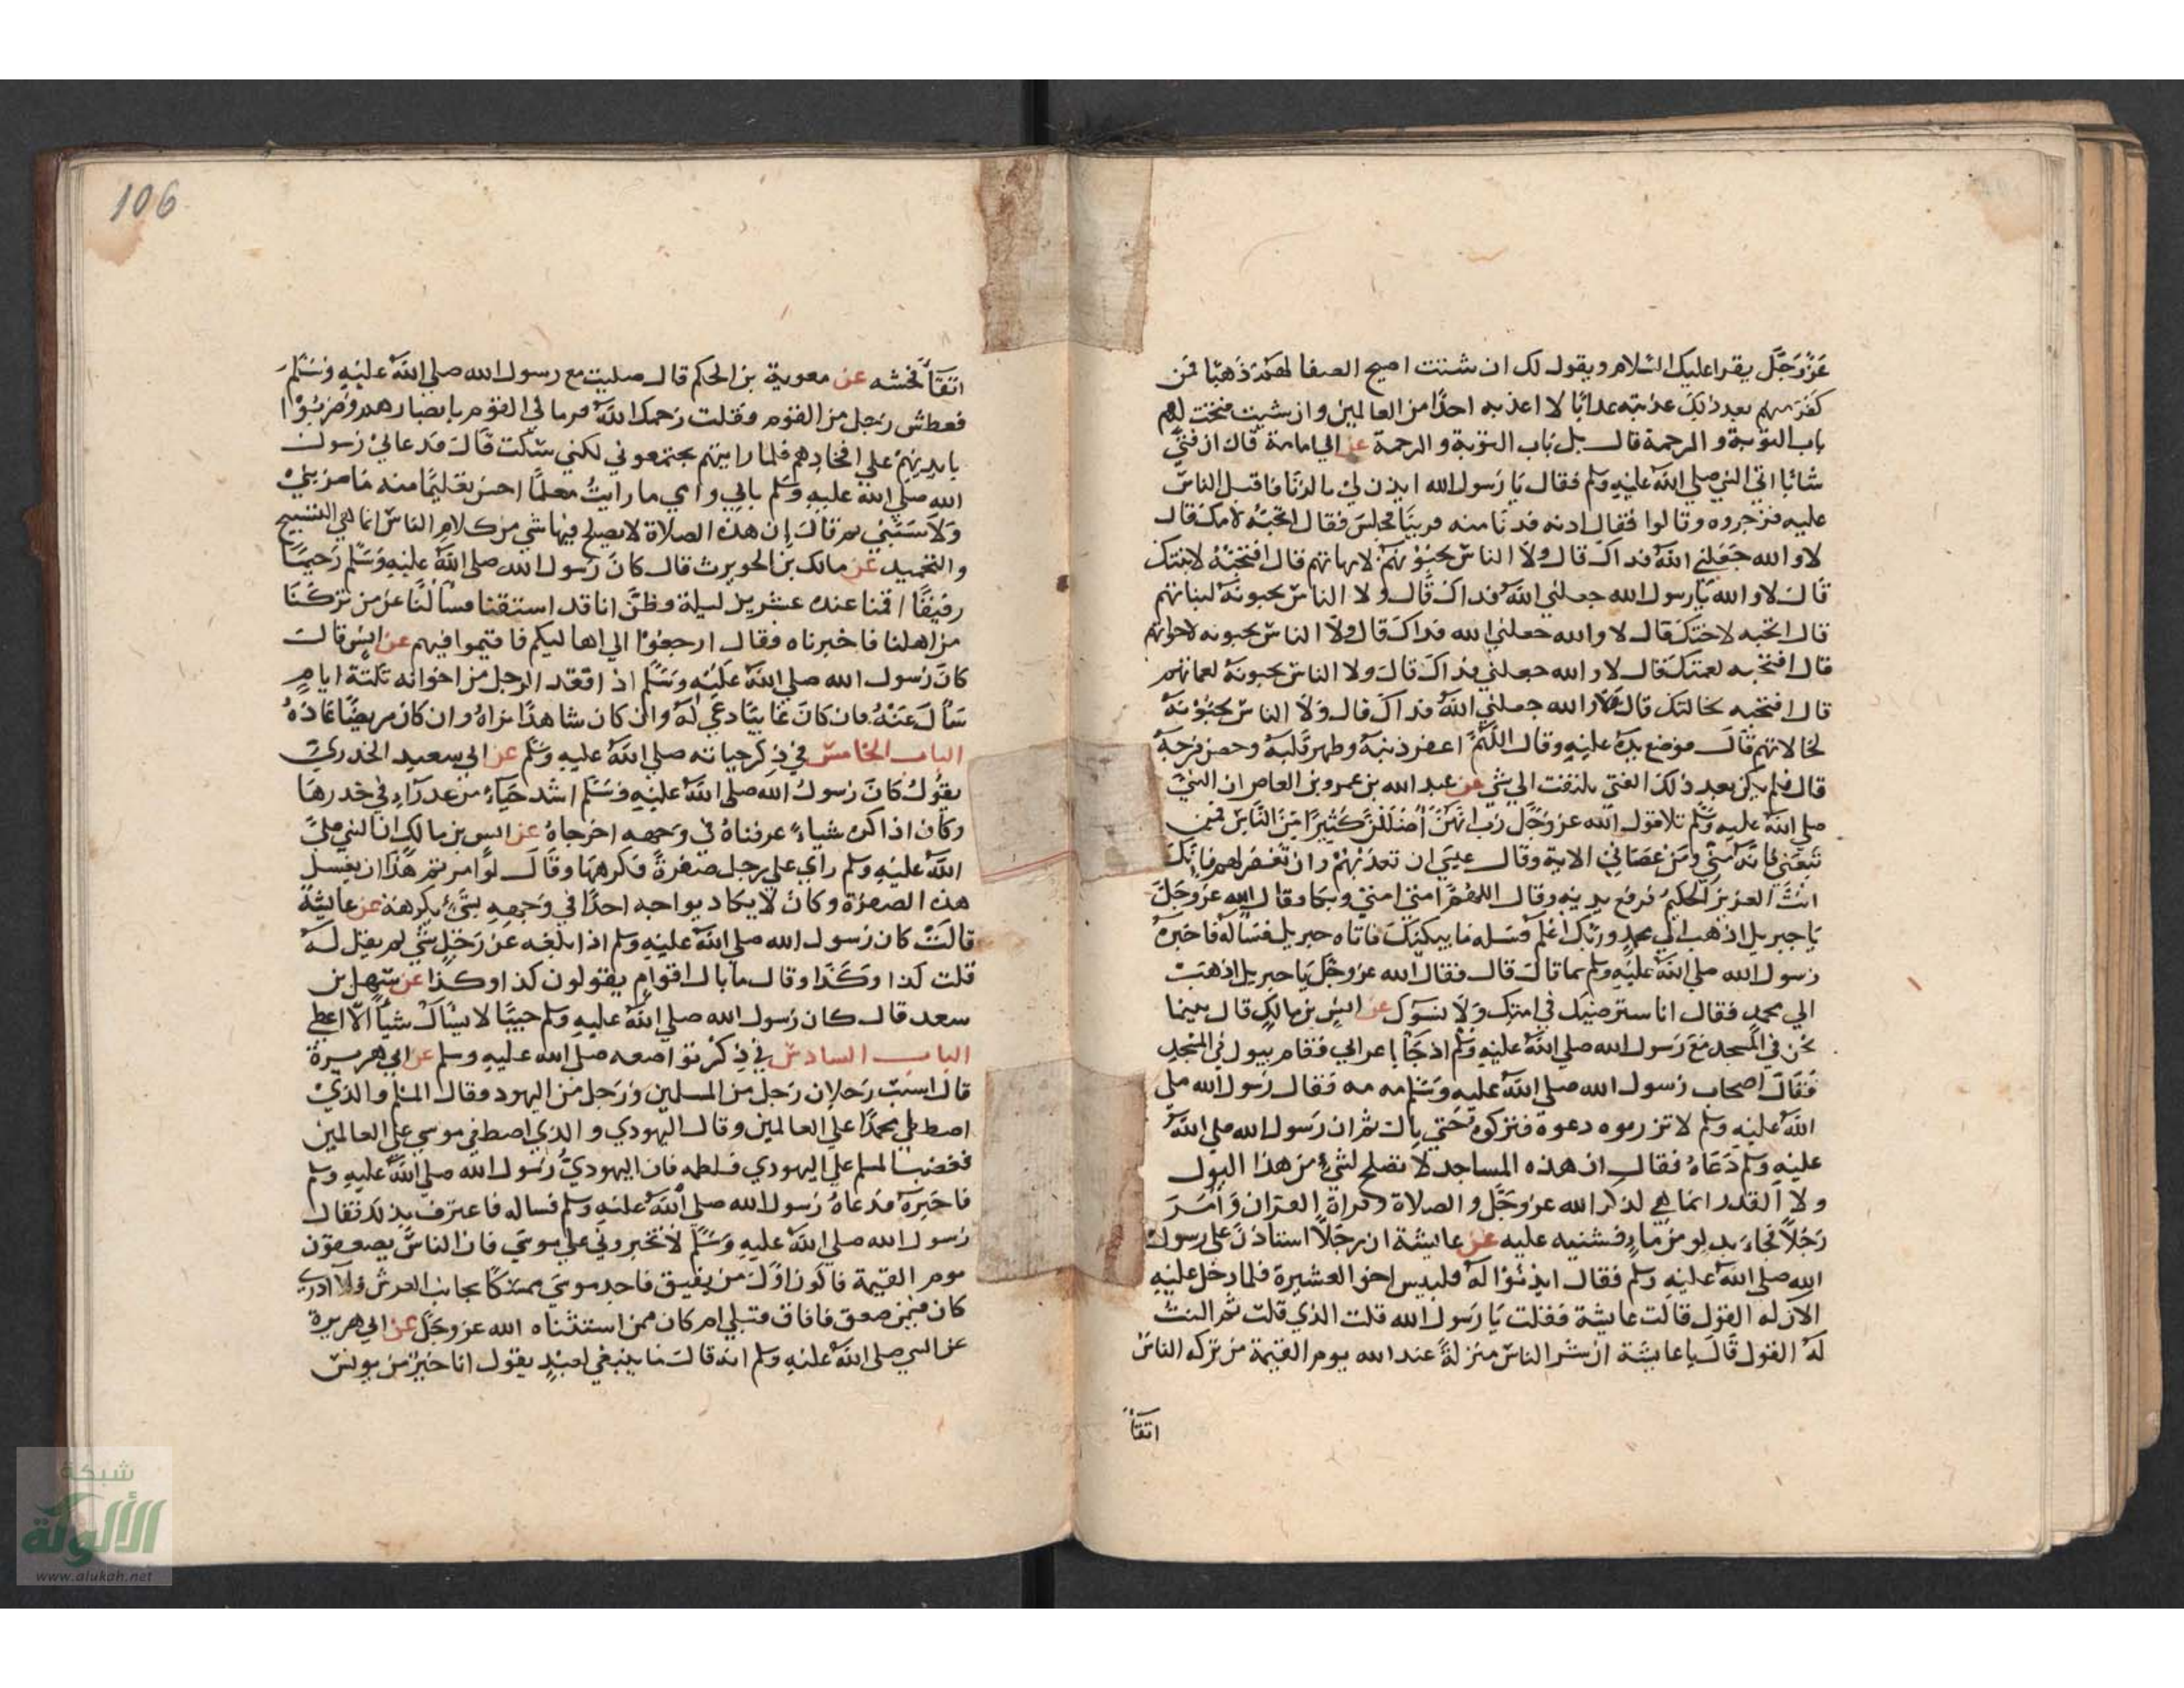 عَزَّ وَجَلَّ يقرا عليك السلام ويقول لك ان شئت اصبح الصفا لهم ذهبًا فمن
كفر منهم بعد ذلك عذبته عذابًا لا اعذبه احدًا من العالمين وان شيت فتحت لهم
باب التوبة والرحمة قال بل باب التوبة والرحمة عن ابي امامة قال ان فتيً
شابا اتي النبي صلي الله عليه وسلم فقال يا رسول الله ايذن لي بالزنا فاقبل الناس
عليه فزجروه وقالوا فقال ادنه فدنا منه قريبًا فجلس فقال اتحبّه لامك قال
لا والله جعلني الله فداك قال ولا الناس يحبونه لامهاتهم قال افتحبّه لابنتك
قال لا والله يا رسول الله جعلني الله فداك قال ولا الناس يحبونه لبناتهم
قال اتحبه لاختك قال لا والله جعلني الله فداك قال ولا الناس يحبونه لاخواتهم
قال افتحبه لعمتك قال لا والله جعلني فداك قال ولا الناس يحبونه لعماتهم
قال افتحبه لخالتك قال لا والله جعلني الله فداك قال ولا الناس يحبونه
لخالاتهم قال فوضع يده عليه وقال اللهم اغفر ذنبه وطهر قلبه وحصن فرجه
قال فلم يكن بعد ذلك الفتي يلتفت الي شي عن عبد الله بن عمرو بن العاص ان النبي
صلي الله عليه وسلم تلا قول الله عز وجل رب انهن اضللن كثيرًا من الناس فمن
تبعني فانه مني ومن عصاني الاية وقال عيسي ان تعذبهم وان تغفر لهم فانك
انت العزيز الحكيم فرفع يديه وقال اللهم امتي امتي وبكا فقال الله عز وجل
يا جبريل اذهب الي محمد وربك اعلم فسله ما يبكيك فاتاه جبريل فساله فاخبره
رسول الله صلي الله عليه وسلم بما قال قال فقال الله عز وجل يا جبريل اذهب
الي محمد فقال انا سنرضيك في امتك ولا نسوك عن انس بن مالك قال بينما
نحن في المسجد مع رسول الله صلي الله عليه وسلم اذ جا اعرابي فقام يبول في المسجد
فقال اصحاب رسول الله صلي الله عليه وسلم مه مه فقال رسول الله صلي
الله عليه وسلم لا تزرموه دعوه فتركوه حتي بال ثم ان رسول الله صلي الله
عليه وسلم دعاه فقال ان هذه المساجد لا تصلح لشي من هذا البول
ولا القذر انما هي لذكر الله عز وجل والصلاة وقراة القران وامر
رجلا فجاء بدلو من ماء فشنه عليه عن عايشة ان رجلا استاذن علي رسول
الله صلي الله عليه وسلم فقال ايذنوا له فلبيس اخو العشيرة فلما دخل عليه
الان له القول قالت عايشة فقلت يا رسول الله قلت الذي قلت ثم النت
له القول قال يا عايشة ان شر الناس منزلة عند الله يوم القيمة من تركه الناس
اتقا
106
اتقاء فحشه عن معوية بن الحكم قال صليت مع رسول الله صلي الله عليه وسلم
فعطش رجل من القوم فقلت رحمك الله فرماني القوم بابصارهم وضربوا
بايديهم علي افخاذهم فلما رايتهم يصمتوني لكني سكت قال فدعاني رسول
الله صلي الله عليه وسلم بابي وامي ما رايت معلما احسن تعليمًا منه ما ضربني
ولا سبني ثم قال إن هذه الصلاة لا يصلح فيها شي من كلام الناس انما هي التسبيح
والتحميد عن مالك بن الحويرث قال كان رسول الله صلي الله عليه وسلم رحيمًا
رفيقًا اقمنا عنده عشرين ليلة وظن انا قد اشتقنا فسألنا عن من تركنا
من اهلنا فاخبرناه فقال ارجعوا الي اهاليكم فاقيموا فيهم عن انس قال
كان رسول الله صلي الله عليه وسلم اذا فقد الرجل من اخوانه ثلثة ايام
سأل عنه فان كان غايبًا دعي له وان كان شاهدًا زاره وان كان مريضًا عاده
الباب الخامس في ذكر حيائه صلي الله عليه وسلم عن ابي سعيد الخدري
يقول كان رسول الله صلي الله عليه وسلم اشد حياءً من عذراء في خدرها
وكان اذا كره شياء عرفناه في وجهه اخرجاه عن انس بن مالك ان النبي صلي
الله عليه وسلم راي علي رجل صفرة فكرهها وقال لو امرتم هذا ان يغسل
هذه الصفرة وكان لا يكاد يواجه احدًا في وجهه بشي يكرهه عن عايشة
قالت كان رسول الله صلي الله عليه وسلم اذا بلغه عن رجل شي لم يقل له
قلت كذا وكذا وقال ما بال اقوام يقولون كذا وكذا عن سهل بن
سعد قال كان رسول الله صلي الله عليه وسلم حييًا لا يسأل شيأ الا اعطي
الباب السادس في ذكر تواضعه صلي الله عليه وسلم عن ابي هريرة
قال استب رجلان رجل من المسلمين ورجل من اليهود فقال المسلم والذي
اصطفي محمدًا علي العالمين وقال اليهودي والذي اصطفي موسي علي العالمين
فغضب المسلم علي اليهودي فلطمه فاتي اليهودي رسول الله صلي الله عليه وسلم
فاخبره فدعاه رسول الله صلي الله عليه وسلم فساله فاعترف بذلك فقال
رسول الله صلي الله عليه وسلم لا تخيروني علي موسي فان الناس يصعقون
يوم القيمة فاكون اول من يفيق فاجد موسي ممسكا بجانب العرش فلا ادري
كان فيمن صعق فافاق قبلي ام كان ممن استثناه الله عز وجل عن ابي هريرة
عن النبي صلي الله عليه وسلم انه قال ما ينبغي لعبد يقول انا خير من يونس
شبكة
الألوكة
www.alukah.net